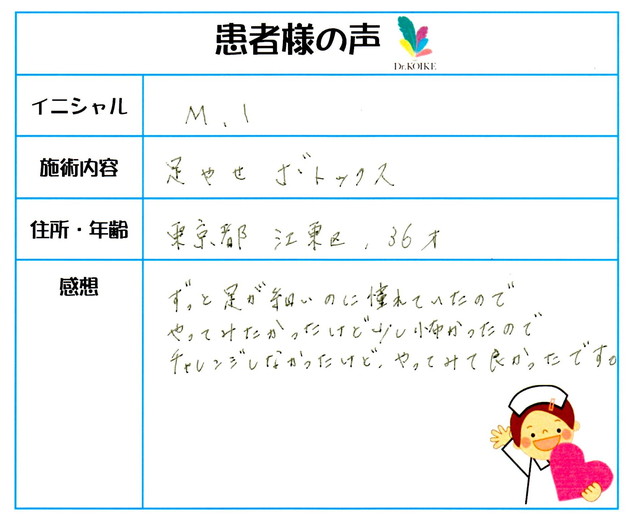 患者様の声
Dr.KOIKE
イニシャル
M.I
施術内容
足やせ ボトックス
住所・年齢
東京都 江東区、36才
感想
ずっと足が細いのに憧れていたので
やってみたかったけど少し怖かったので
チャレンジしなかったけど、やってみて良かったです。